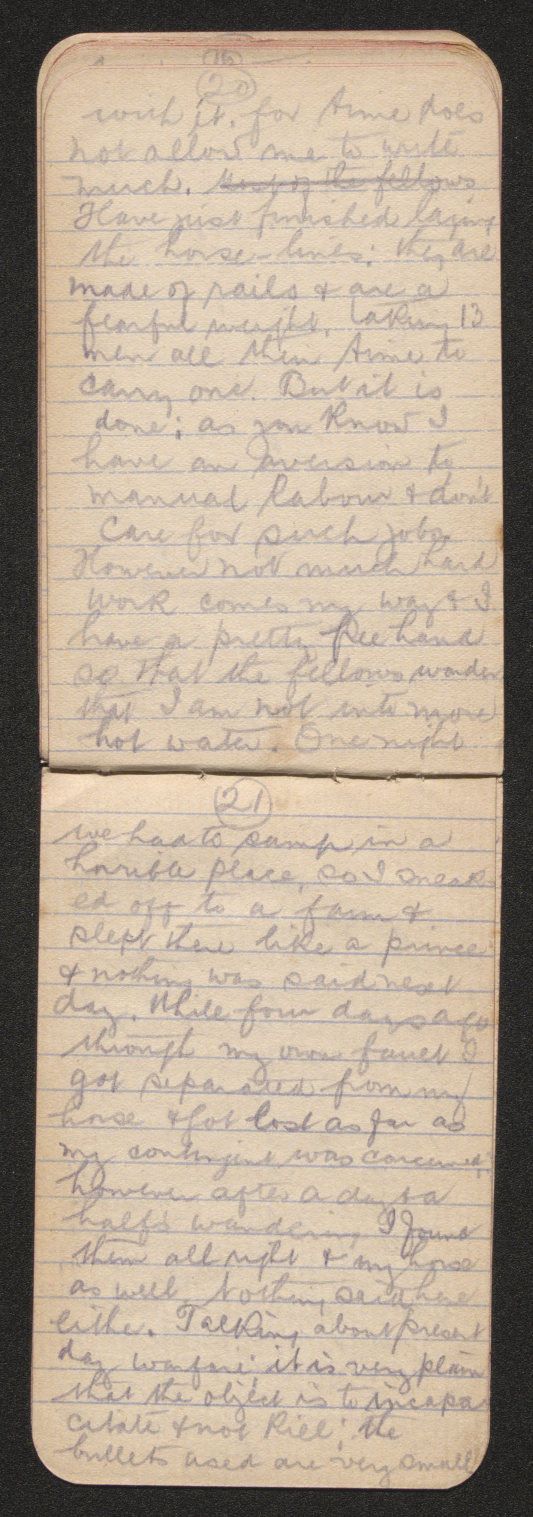 20
with it, for time does
not allow me to write
much. Most of the fellows
Have just finished laying
the horse-lines; they are
made of rails & are a
fearful weight, taking 13
men all their time to
carry one. But it is
done; as you know I
have an aversion to
manual labour & don't
care for such jobs.
However not much hard
work comes my way & I
have a pretty free hand
so that the fellows wonder
that I am not into more
hot water. One night
21
we had to camp in a
horrible place, so I sneak-
ed off to a farm &
slept there like a prince
& nothing was said next
day. While four days ago
through my own fault I
got separated from my
horse & got lost as far as
my contingent was concerned;
however after a day & a
half's wandering I found
them all right & my horse
as well. Nothing said here
either. Talking about present
day warfare; it is very plain
that the object is to incapa
citate & not kill; the
bullets used are very small